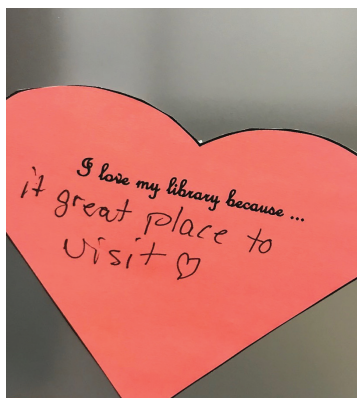 I love my library because ...
it great place to
visit ♡